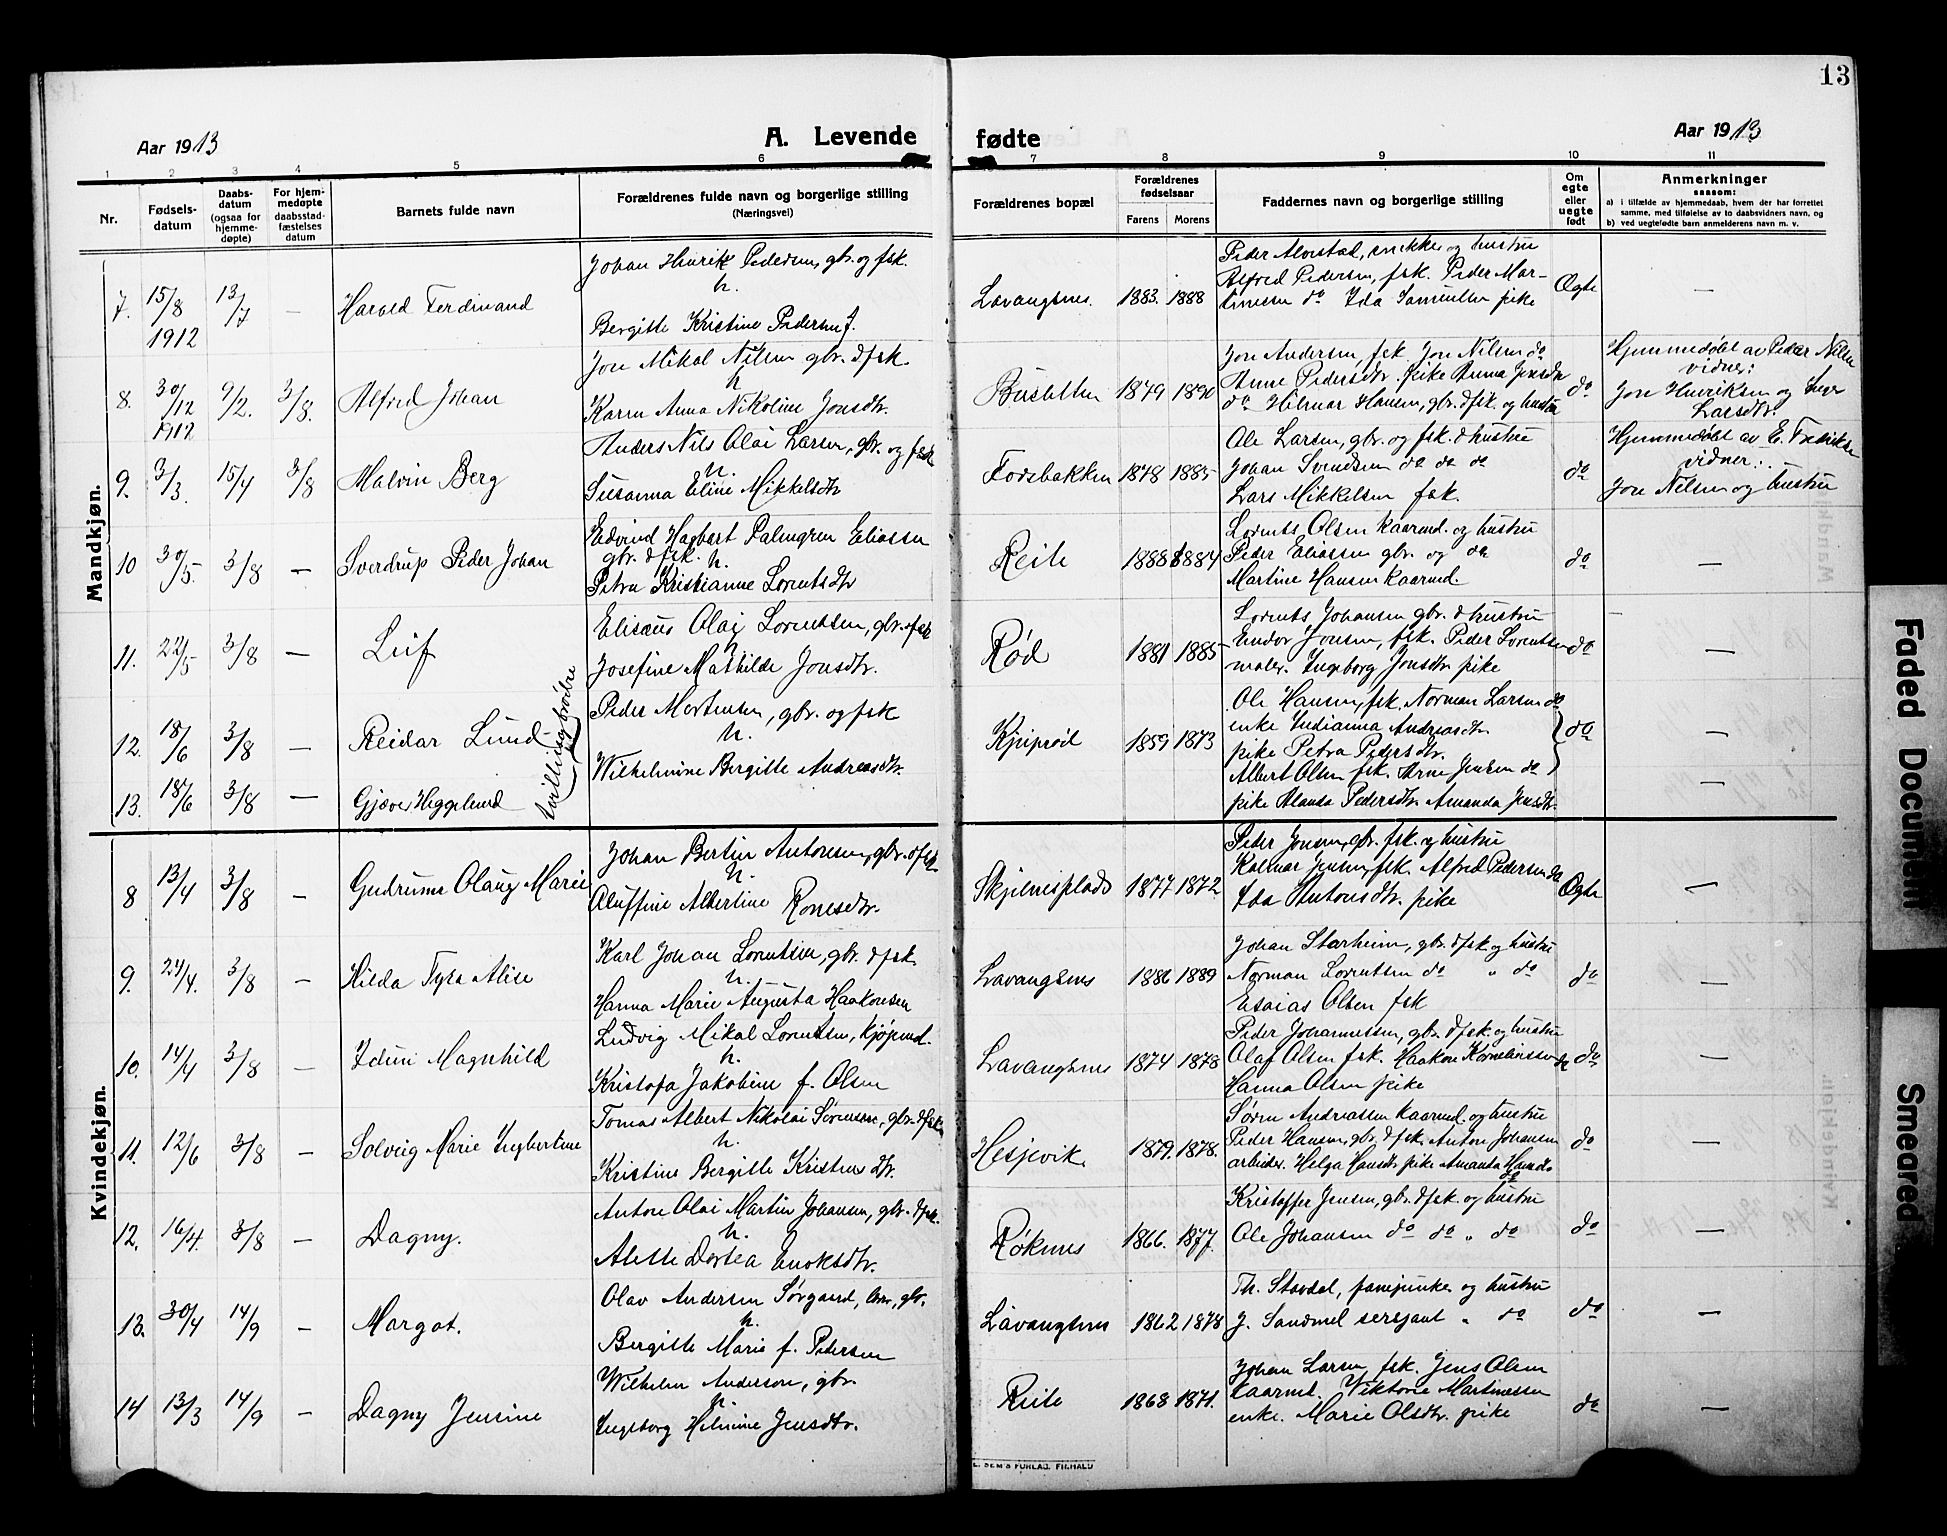 13
Aar 1913
A. Levende
fødte
Aar 1913
1 2 3 4 5 6 7 8 9 10 11
Nr.
Fødsels-
datum
Daabs-
datum
(ogsaa for
hjemme-
døpte)
For hjem-
medøpte
daabsstad-
fæstelses
datum
Barnets fulde navn
Forældrenes fulde navn og borgerlige stilling
(Næringsvei)
Forældrenes bopæl
Forældrenes
fødselsaar
Farens Morens
Faddernes navn og borgerlige stilling
Om
egte
eller
uegte
født
Anmerkninger
saasom:
a) i tilfælde av hjemmedaab, hvem der har forrettet
samme, med tilføielse av to daabsvidners navn, og
b) ved uegtefødte barn anmelderens navn m. v.
Mandkjøn.
7. 15/8 1912 13/7 — Harald Ferdinand
Johan Henrik Pedersen, gbr. og fsk.
h.
Bergitte Kristine Pedersen f.
Lavangsnes. 1883. 1888
Peder Alvestad, snekker og hustru
Alfred Pedersen, fsk. Peder Mar-
tinesen do Ida Samuelsen pike
Ægte —
8. 30/12 1912 9/2. 3/8. Alfred Johan
Jon Mikal Nilsen gbr. & fsk.
h
Karen Anna Nikoline Jonsdtr.
1849 1890
Jon Andersen, fsk. Jon Nilsen do
Anne Pedersdtr. pike Anna Jensdtr
do Hilmar Hansen, gbr. & fsk. og hustru
do
Hjemmedøbt av Peder Nilsen
vidner:
Jon Henriksen og Inger
Larsdtr.
9. 3/3. 15/4 3/8 Malvin Berg
Anders Nils Olai Larsen, gbr. og fsk
h.
Susanna Eline Mikkelsdtr
Fodsbakken 1878 1885
Ole Larsen, gbr. og fsk. & hustru
Johan Svendsen do do do
Lars Mikkelsen fsk.
do
Hjemmedøbt av E. Fredriksen
vidner:
Jon Nilsen og hustru
10 30/5. 3/8 — Sverdrup Peder Johan
Edvind Hagbart Palmgren Eliassen
gbr. & fsk. h.
Petra Kristianne Lorentsdtr
Reite 1888 1884
Lorents Olsen kaarmd. og hustru
Peder Eliassen gbr. og do
Martine Hansen kaarmd.
do —
11. 22/5 3/8 — Leif
Elisæus Olai Lorentsen, gbr. & fsk
h
Josefine Mathilde Jonsdtr.
Rød 1881 1885
Lorents Johansen gbr. & hustru
Endor Jonsen, fsk. Peder Lorentsen
maler. Ingeborg Jonsdtr pike
do —
12. 18/6 3/8 — Reidar Lund
Tvillingbrødre
Peder Mortensen, gbr. og fsk
h.
Wilhelmine Bergitte Andreasdtr.
Kjeiprød 1859 1873
Ole Hansen, fsk. Norman Larsen do
enke Indianna Andreasdtr
pike Petra Pedersdtr.
do —
13. 18/6 3/8 — Gjæver Heggelund
Albert Olsen fsk. Arne Jensen do
pike Hansa Pedersdtr. Amanda Jensdtr.
—
Kvindekjøn.
8 13/4 3/8 — Gudrunn Olaug Marie
Johan Bertin Antonsen, gbr. & fsk.
h.
Oluffine Albertine Ronesdtr.
Skjelnesplads 1877 1872.
Peder Jonsen, gbr. fsk. og hustru
Kalmar Jensen, fsk. Alfred Pedersen do
Ida Antonsdtr. pike
Ægte —
9. 24/4. 3/8 — Hilda Tyra Alise
Karl Johan Lorentsen, gbr. & fsk.
h.
Hanna Marie Augusta Haakonsen
Lavangsnes 1886 1889
Johan Starheim, gbr. & fsk og hustru
Norman Lorentsen do " do
Esaias Olsen fsk
do —
10. 14/4 3/8 — Idun Magnhild
Ludvig Mikal Lorentsen, kjøpmd.
h.
Kristofa Jakobine f. Olsen
Lavangsnes 1874 1878
Peder Johannessen, gbr. & fsk. og hustru
Olaf Olsen fsk. Haakon Korneliussen do
Hanna Olsen pike
do —
11. 12/6 3/8 — Solveig Marie Ingbertine
Tomas Albert Nikolai Sørensen, gbr. & fsk
h.
Kristine Bergitte Kristensdtr.
Hesjevik 1879. 1878.
Søren Andreassen kaarmd. og hustru
Peder Hansen, gbr. & fsk. Anton Johansen
arbeider. Helga Hansdtr pike Amanda Hansdtr
do
do —
12. 16/4. 3/8 — Dagny.
Anton Olai Martin Johansen, gbr. & fsk.
h.
Alette Dortea Enoksdtr.
Røknes 1866. 1877.
Kristoffer Jensen, gbr. & fsk. og hustru
Ole Johansen do do " do
do —
13. 30/4 14/9 — Margot.
Olav Andersen Sørgaard, gbr.
h.
Bergitte Marie f. Pedersen
Lavangsnes 1862 1878
Th. Stordal, fanejunker og hustru
J. Sandmel sersjant " do
do —
14 13/3 14/9 — Dagny Jensine
Wilhelm Anderson, gbr.
h.
Ingeborg Helmine Jensdtr.
Reite 1868 1871.
Johan Larsen, fsk. Jens Olsen
kaarmd. Viktoria Martinessen
enke. Marie Olsdtr. pike
do —
E. SEM'S FORLAG. FR.HALD
Faded Document
Smeared